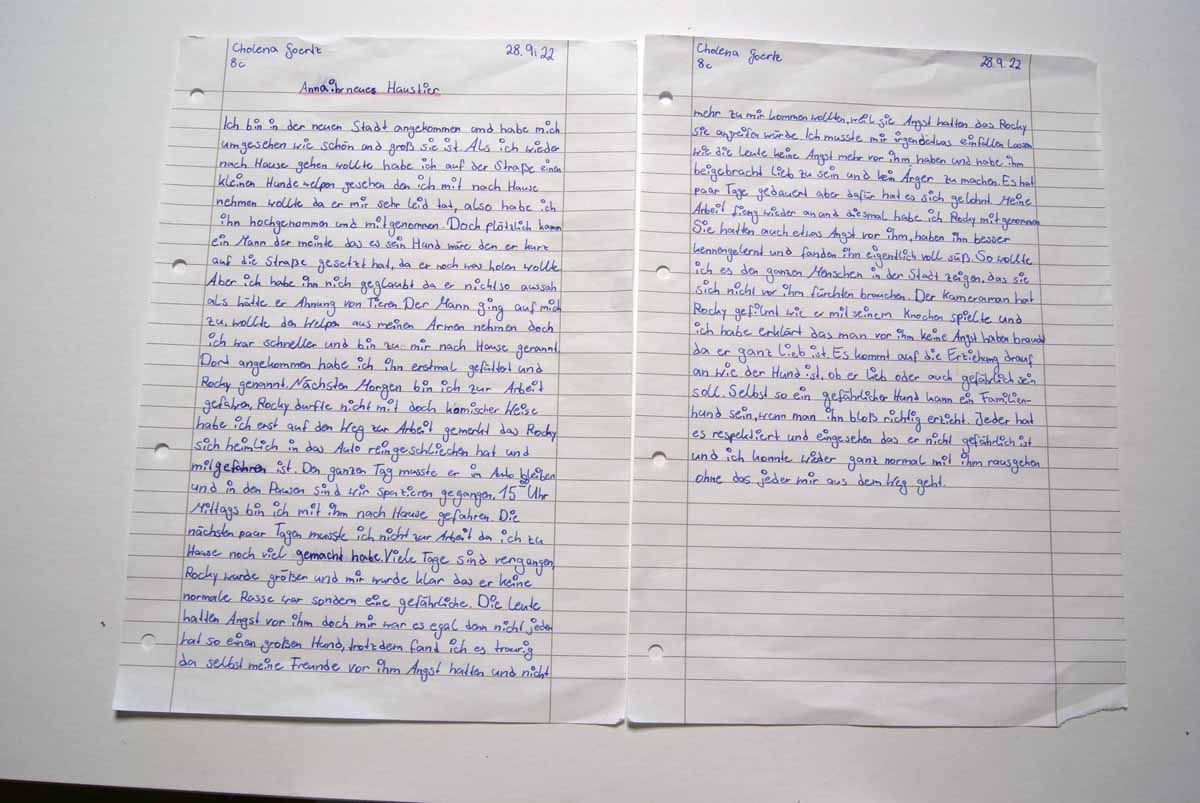 Cholena Goertz 28.9.22
8c
Anna ihr neues Haustier
Ich bin in der neuen Stadt angekommen und habe mich
umgesehen wie schön and groß sie ist. Als ich wieder
nach Hause gehen wollte habe ich auf der Straße einen
kleinen Hundewelpen gesehen den ich mit nach Hause
nehmen wollte da er mir sehr leid tat, also habe ich
ihn hochgenommen und mitgenommen. Doch plötzlich kam
ein Mann der meinte das es sein Hund wäre den er kurz
auf die Straße gesetzt hat, da er noch was holen wollte
Aber ich habe ihn nich geglaubt da er nicht so aussah
als hätte er Ahnung von Tieren. Der Mann ging auf mich
zu, wollte den Welpen aus meinen Armen nehmen doch
ich war schneller und bin zu mir nach Hause gerannt.
Dort angekommen habe ich ihn erstmal gefüttet und
Rocky genannt. Nächsten Morgen bin ich zur Arbeit
gefahren, Rocky durfte nicht mit doch komischer Weise
habe ich erst auf den Weg zur Arbeit gemerkt das Rocky
sich heimlich in das Auto reingeschliechen hat und
mitgefahren ist. Den ganzen Tag musste er im Auto bleiben
und in den Pausen sind wir spatzieren gegangen. 15 00 Uhr
Mittags bin ich mit ihm nach Hause gefahren. Die
nächsten paar Tagen musste ich nicht zur Arbeit da ich zu
Hause noch viel gemacht habe. Viele Tage sind vergangen
Rocky wurde größer und mir wurde klar das er keine
normale Rasse war sondern eine gefährliche. Die Leute
hatten Angst vor ihm doch mir war es egal denn nicht jeder
hat so einen großen Hund, trotzdem fand ich es traurig
da selbst meine Freunde vor ihm Angst hatten und nicht
Cholena Goertz 28.9.22
8c
mehr zu mir kommen wollten, weil sie Angst hatten das Rocky
sie angreifen würde. Ich musste mir irgendetwas einfallen lassen
wie die Leute keine Angst mehr vor ihm haben und habe ihm
beigebracht lieb zu sein und kein Ärger zu machen. Es hat
paar Tage gedauert aber dafür hat es sich gelohnt. Meine
Arbeit fieng wieder an and diesmal habe ich Rocky mitgenommen
Sie hatten auch etwas Angst vor ihm, haben ihn besser
kennengelernt und fanden ihn eigentlich voll süß. So wollte
ich es den ganzen Menschen in der Stadt zeigen, das sie
sich nicht vor ihm fürchten brauchen. Der Kameraman hat
Rocky gefilmt wie er mit seinem Knochen spielte und
ich habe erklärt das man vor ihm keine Angst haben braucht
da er ganz lieb ist. Es kommt auf die Erziehung drauf
an wie der Hund ist, ob er lieb oder auch gefährlich sein
soll. Selbst so ein gefährlicher Hund kann ein Familien-
hund sein, wenn man ihn bloß richtig erzieht. Jeder hat
es respektiert und eingesehen das er nicht gefährlich ist
und ich konnte wieder ganz normal mit ihm rausgehen
ohne das jeder mir aus dem Weg geht.